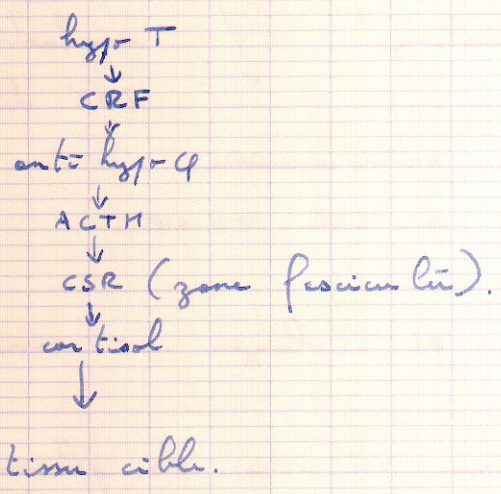 hypo T
↓
CRF
↓
anté hypo φ
↓
ACTH
↓
CSR (zone fasciculée).
↓
cortisol
↓
tissu cible.